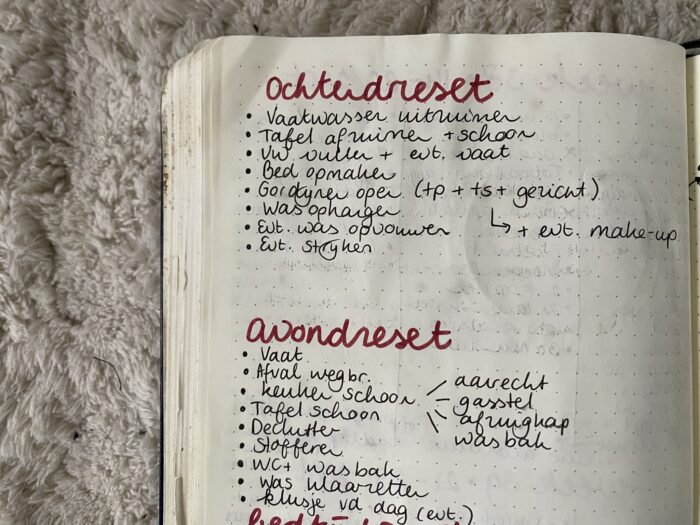 Ochtendreset
• Vaatwasser uitruimen
• Tafel afruimen + schoon
• VW vullen + evt. vaat
• Bed opmaken
• Gordijnen open (tp + ts + gezicht)
• Was ophangen
↳ + evt. make-up
• Evt. was opvouwen
• Evt. strijken
avondreset
• Vaat
• Afval wegbr.
• keuken schoon
aanrecht
gasstel
afzuigkap
wasbak
• Tafel schoon
• Declutter
• Stofferen
• WC + wasbak
• was klaarzetten
• klusje vd dag (evt.)